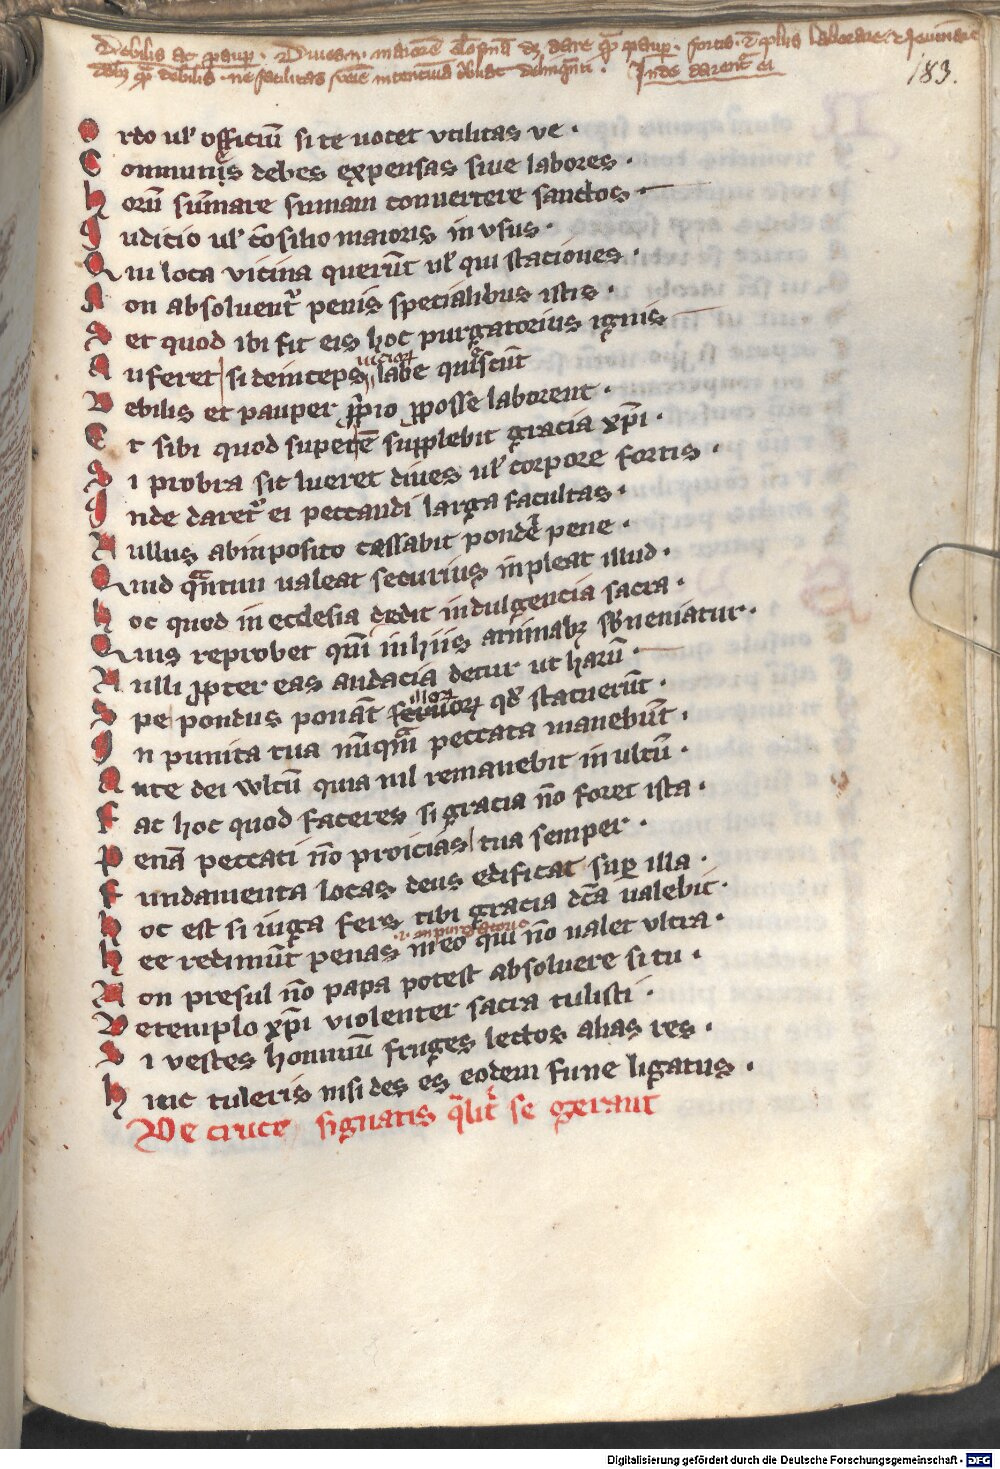 Debilis ac paup. Diues .n. maiorē elosinā dz dare qᷓ paup.
debilis . ne facilitas venie incentiuū delinqnti . Inde darent̄ ei
183.
Ordo ul̓ officiū si te uocet vtilitas ve .
Communis debes expensas siue labores .
horū sūmare sumam conuertere sanctos .
Iudicio ul̓ cōsilio maioris in vsus .
Qui loca vicina querūt ul̓ qui staciones .
Non absoluent̄ penis specialibus istis .
Set quod ibi fit eis hoc purgatorius ignis
Auferet si deinceps labe quiescūt
Debilis et pauper ꝓprio ꝓposse laborent .
Et sibi quod superē supplebit gracia xp̄i .
Si probra sic lueret diues ul̓ corpore fortis .
Inde daret̄ ei peccandi larga facultas .
Nullus abinposito cessabit pondē pene .
Quid qᷓntum ualeat securius inpleat illud .
hoc quod in ecclesia dedit indulgencia sacra .
Quis reprobet qum̄ in hiis animabꝫ sbueniatur .
Nulli ꝓpter eas audacia detur ut harū .
Spe pondus ponāt illoꝝ qd̓ statuerūt .
In punita tua nūqᷓm peccata manebūt .
Ante dei wltū quia nil remanebit in ultū .
Fac hoc quod faceres si gracia nō foret ista .
Penā peccati nō proicias tua semper .
Fundamenta locas deus edificat sup illa .
hoc est si iuga fers tibi gracia dc̄a ualebit .
.i. in purgatorio
hee redimūt penas in eo qui nō ualet vltra .
Non presul nō papa potest absoluere si tu .
De templo xp̄i violenter sacra tulisti .
Si vestes hominū fruges lectos alias res .
huic tuleris nisi des es eodem fune ligatus .
De cruce signatis qᷓlit̄ se gerant
Digitalisierung gefördert durch die Deutsche Forschungsgemeinschaft - DFG